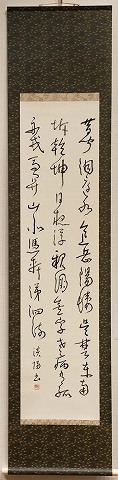 昔聞洞庭水今上岳陽樓吳楚東南
坼乾坤日夜浮親朋無一字老病有孤
舟戎馬關山北憑軒涕泗流